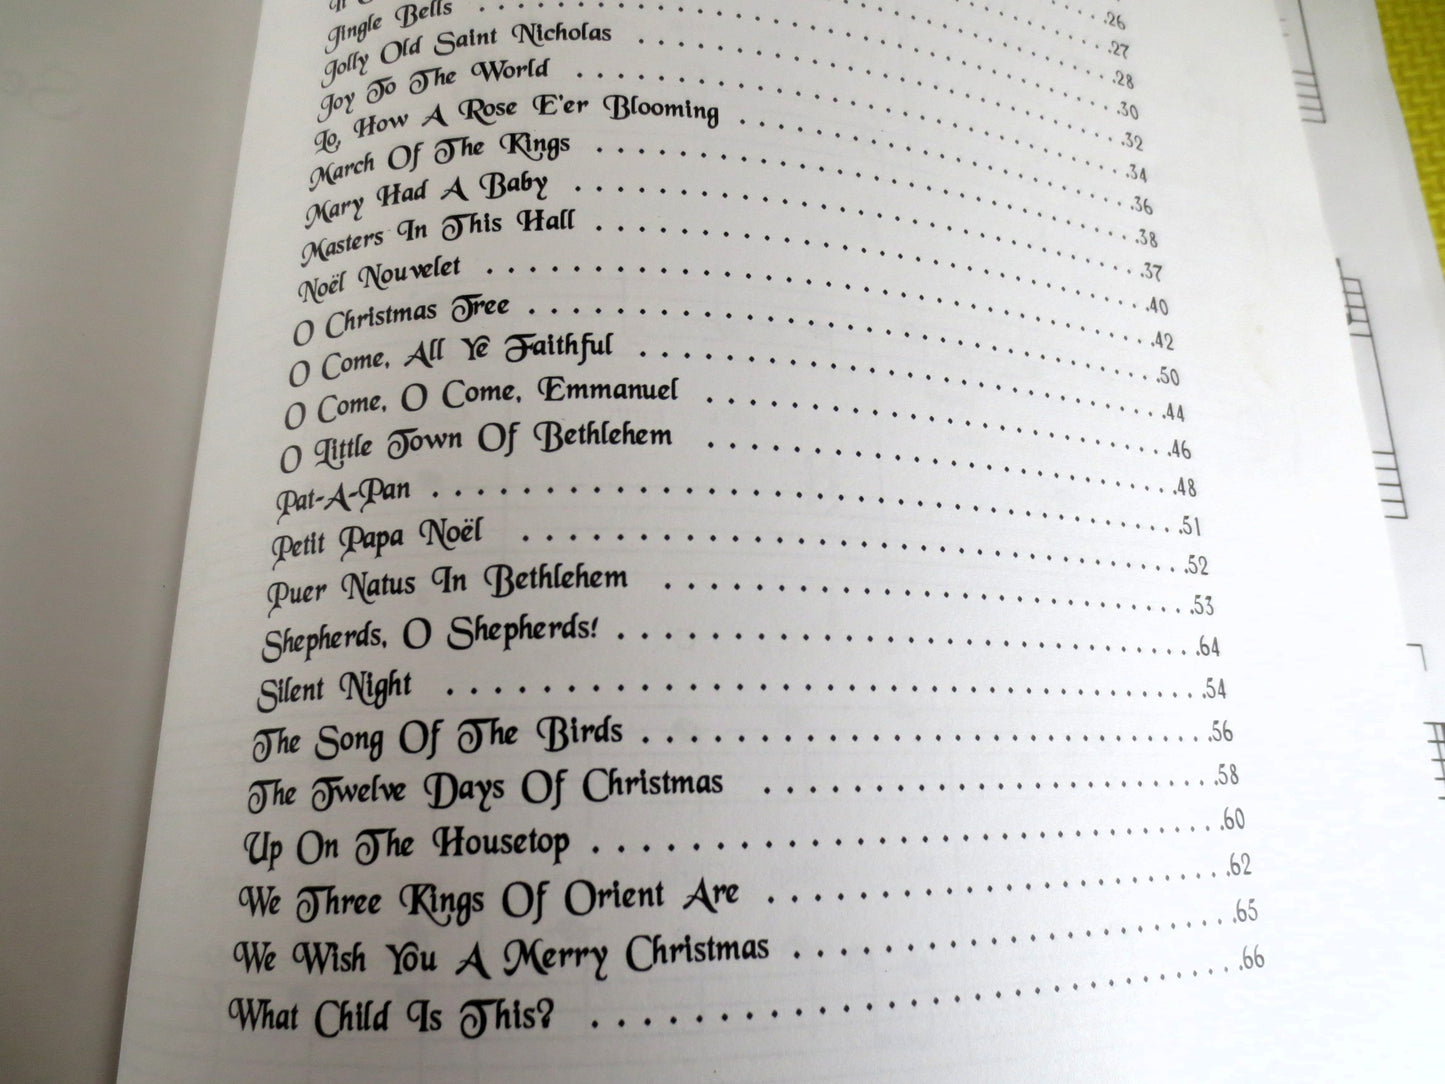 26
27
28
Jingle Bells . . . . 30
Jolly Old Saint Nicholas . . . . 32
Joy To The World . . . . 34
Lo, How A Rose E'er Blooming . . . . 36
March Of The Kings . . . . 38
Mary Had A Baby . . . . 37
Masters In This Hall . . . . 40
Noël Nouvelet . . . . 42
O Christmas Tree . . . . 50
O Come, All Ye Faithful . . . . 44
O Come, O Come, Emmanuel . . . . 46
O Little Town Of Bethlehem . . . . 48
Pat-A-Pan . . . . 51
Petit Papa Noël . . . . 52
Puer Natus In Bethlehem . . . . 53
Shepherds, O Shepherds! . . . . 64
Silent Night . . . . 54
The Song Of The Birds . . . . 56
The Twelve Days Of Christmas . . . . 58
Up On The Housetop . . . . 60
We Three Kings Of Orient Are . . . . 62
We Wish You A Merry Christmas . . . . 65
What Child Is This? . . . . 66